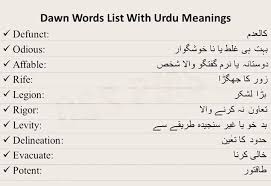 Dawn Words List With Urdu Meanings
✓ Defunct: کالعدم
✓ Odious: بہت ہی غلط یا نا خوشگوار
✓ Affable: دوستانہ یا نرم گفتگو والا شخص
✓ Rife: زور کا جھگڑا
✓ Legion: بڑا لشکر
✓ Rigor: تعاون نہ کرنے والا
✓ Levity: بد خو یا غیر سنجیدہ طریقے سے
✓ Delineation: حدود کا تعین
✓ Evacuate: خالی کرنا
✓ Potent: طاقتور